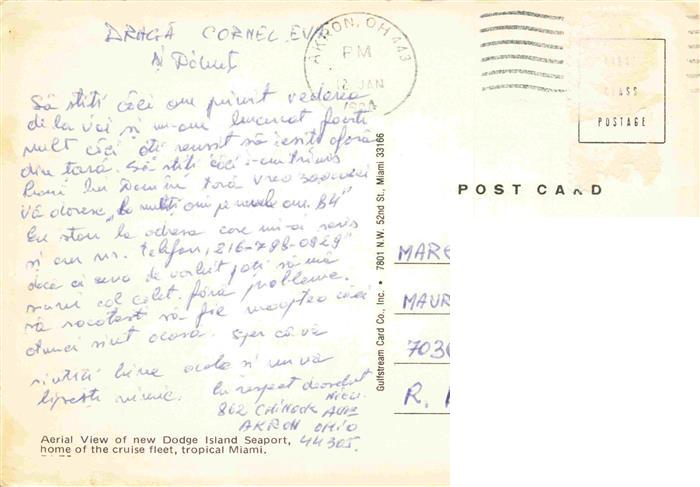 DRAGĂ CORNEL, EVA
și Dănuț
Să știți căci am primit vederea
de la Voi și m-am bucurat foarte
mult căci ați reusit să iesiți afară
din tară. Să știți căci i-am trimis
lui Domini
Vă doresc, "La multi ani pe anul 84"
Eu stau la adresa care mi-ai scris
și am nr. telefon, 216-798-0829"
dacă ai ceva de vorbit poți să mă
suni col colet. fără probleme.
să socotesti să fie noaptea căci
atunci sint acasă. Sper că vă
simtiti bine acolo si nu vă
lipsește nimic. Cu respect deosebit
Nicu.
862 CHINOOK AVE
AKRON OHIO
44305.
Aerial View of new Dodge Island Seaport,
home of the cruise fleet, tropical Miami.
AKRON, OH 443
PM
12 JAN
Gulfstream Card Co., Inc. • 7801 N.W. 52nd St., Miami 33166
CLASS
POSTAGE
POST CARD
MAR
MAUR
703
R.